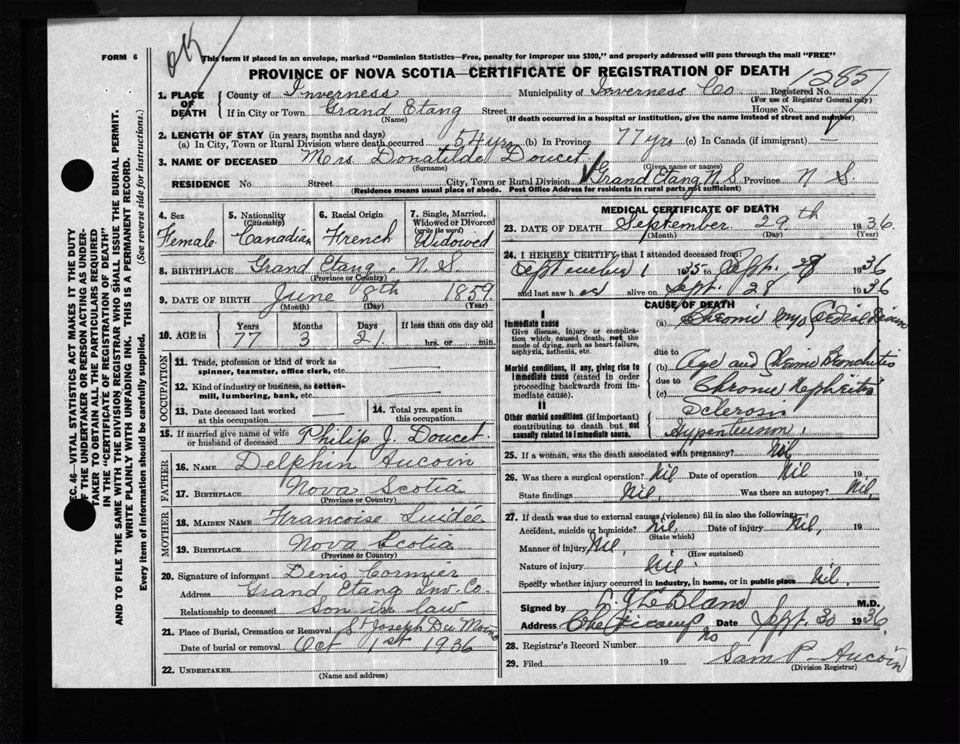 OK
FORM 6
This form if placed in an envelope, marked "Dominion Statistics—Free, penalty for improper use $300," and properly addressed will pass through the mail "FREE"
PROVINCE OF NOVA SCOTIA—CERTIFICATE OF REGISTRATION OF DEATH
1285
1. PLACE OF DEATH County of Inverness Municipality of Inverness Co Registered No.
(For use of Registrar General only)
If in City or Town Grand Etang Street House No.
(Name) (If death occurred in a hospital or institution, give the name instead of street and number)
2. LENGTH OF STAY (in years, months and days)
(a) In City, Town or Rural Division where death occurred 54 yrs (b) In Province 77 yrs (c) In Canada (if immigrant)
3. NAME OF DECEASED Mrs Donatilde Doucet
(Surname) (Given name or names)
RESIDENCE No. Street City, Town or Rural Division Grand Etang N.S. Province N S.
(Residence means usual place of abode. Post Office Address for residents in rural parts not sufficient)
4. Sex Female
5. Nationality (Citizenship) Canadian
6. Racial Origin French
7. Single, Married, Widowed or Divorced (write the word) Widowed
8. BIRTHPLACE Grand Etang, N.S.
(Province or Country)
9. DATE OF BIRTH June 8th 1859
(Month) (Day) (Year)
10. AGE in Years 77 Months 3 Days 21 If less than one day old hrs. or min.
OCCUPATION
11. Trade, profession or kind of work as spinner, teamster, office clerk, etc.
12. Kind of industry or business, as cotton-mill, lumbering, bank, etc.
13. Date deceased last worked at this occupation
14. Total yrs. spent in this occupation
15. If married give name of wife or husband of deceased Philip J. Doucet.
FATHER
16. NAME Delphin Aucoin
17. BIRTHPLACE Nova Scotia
(Province or Country)
MOTHER
18. MAIDEN NAME Francoise
19. BIRTHPLACE Nova Scotia
(Province or Country)
20. Signature of informant Denis Cormier
Address Grand Etang Inv. Co.
Relationship to deceased Son in law
21. Place of Burial, Cremation or Removal St Joseph Du Moine
Date of burial or removal Oct 1st 1936
22. UNDERTAKER
(Name and address)
MEDICAL CERTIFICATE OF DEATH
23. DATE OF DEATH September 29th 1936.
(Month) (Day) (Year)
24. I HEREBY CERTIFY that I attended deceased from:
September 1 1935 to Sept. 28 1936
and last saw h er alive on Sept. 28 1936
CAUSE OF DEATH
I
Immediate cause
Give disease, injury or complication which caused death, not the mode of dying, such as heart failure, asphyxia, asthenia, etc.
(a) Chronic Myo
Morbid conditions, if any, giving rise to immediate cause (stated in order proceeding backwards from immediate cause).
due to
(b) Age and Bronchitis
due to
(c) Chronic Nephritis
II
Other morbid conditions (if important) contributing to death but not causally related to immediate cause.
Sclerosis
Hypertension.
25. If a woman, was the death associated with pregnancy? No
26. Was there a surgical operation? Nil Date of operation Nil
State findings Nil. Was there an autopsy? Nil,
27. If death was due to external causes (violence) fill in also the following:
Accident, suicide or homicide? Nil, Date of injury Nil, 19
(State which)
Manner of injury Nil,
(How sustained)
Nature of injury Nil.
Specify whether injury occurred in industry, in home, or in public place Nil,
Signed by LeBlanc M.D.
Address Cheticamp Date Sept. 30 1936,
28. Registrar's Record Number no
29. Filed 19 Sam P. Aucoin
(Division Registrar)
SEC. 46—VITAL STATISTICS ACT MAKES IT THE DUTY
OF THE UNDERTAKER OR PERSON ACTING AS UNDER-
TAKER TO OBTAIN ALL THE PARTICULARS REQUIRED
IN THE "CERTIFICATE OF REGISTRATION OF DEATH"
AND TO FILE THE SAME WITH THE DIVISION REGISTRAR WHO SHALL ISSUE THE BURIAL PERMIT.
WRITE PLAINLY WITH UNFADING INK. THIS IS A PERMANENT RECORD.
Every item of information should be carefully supplied. (See reverse side for instructions.)